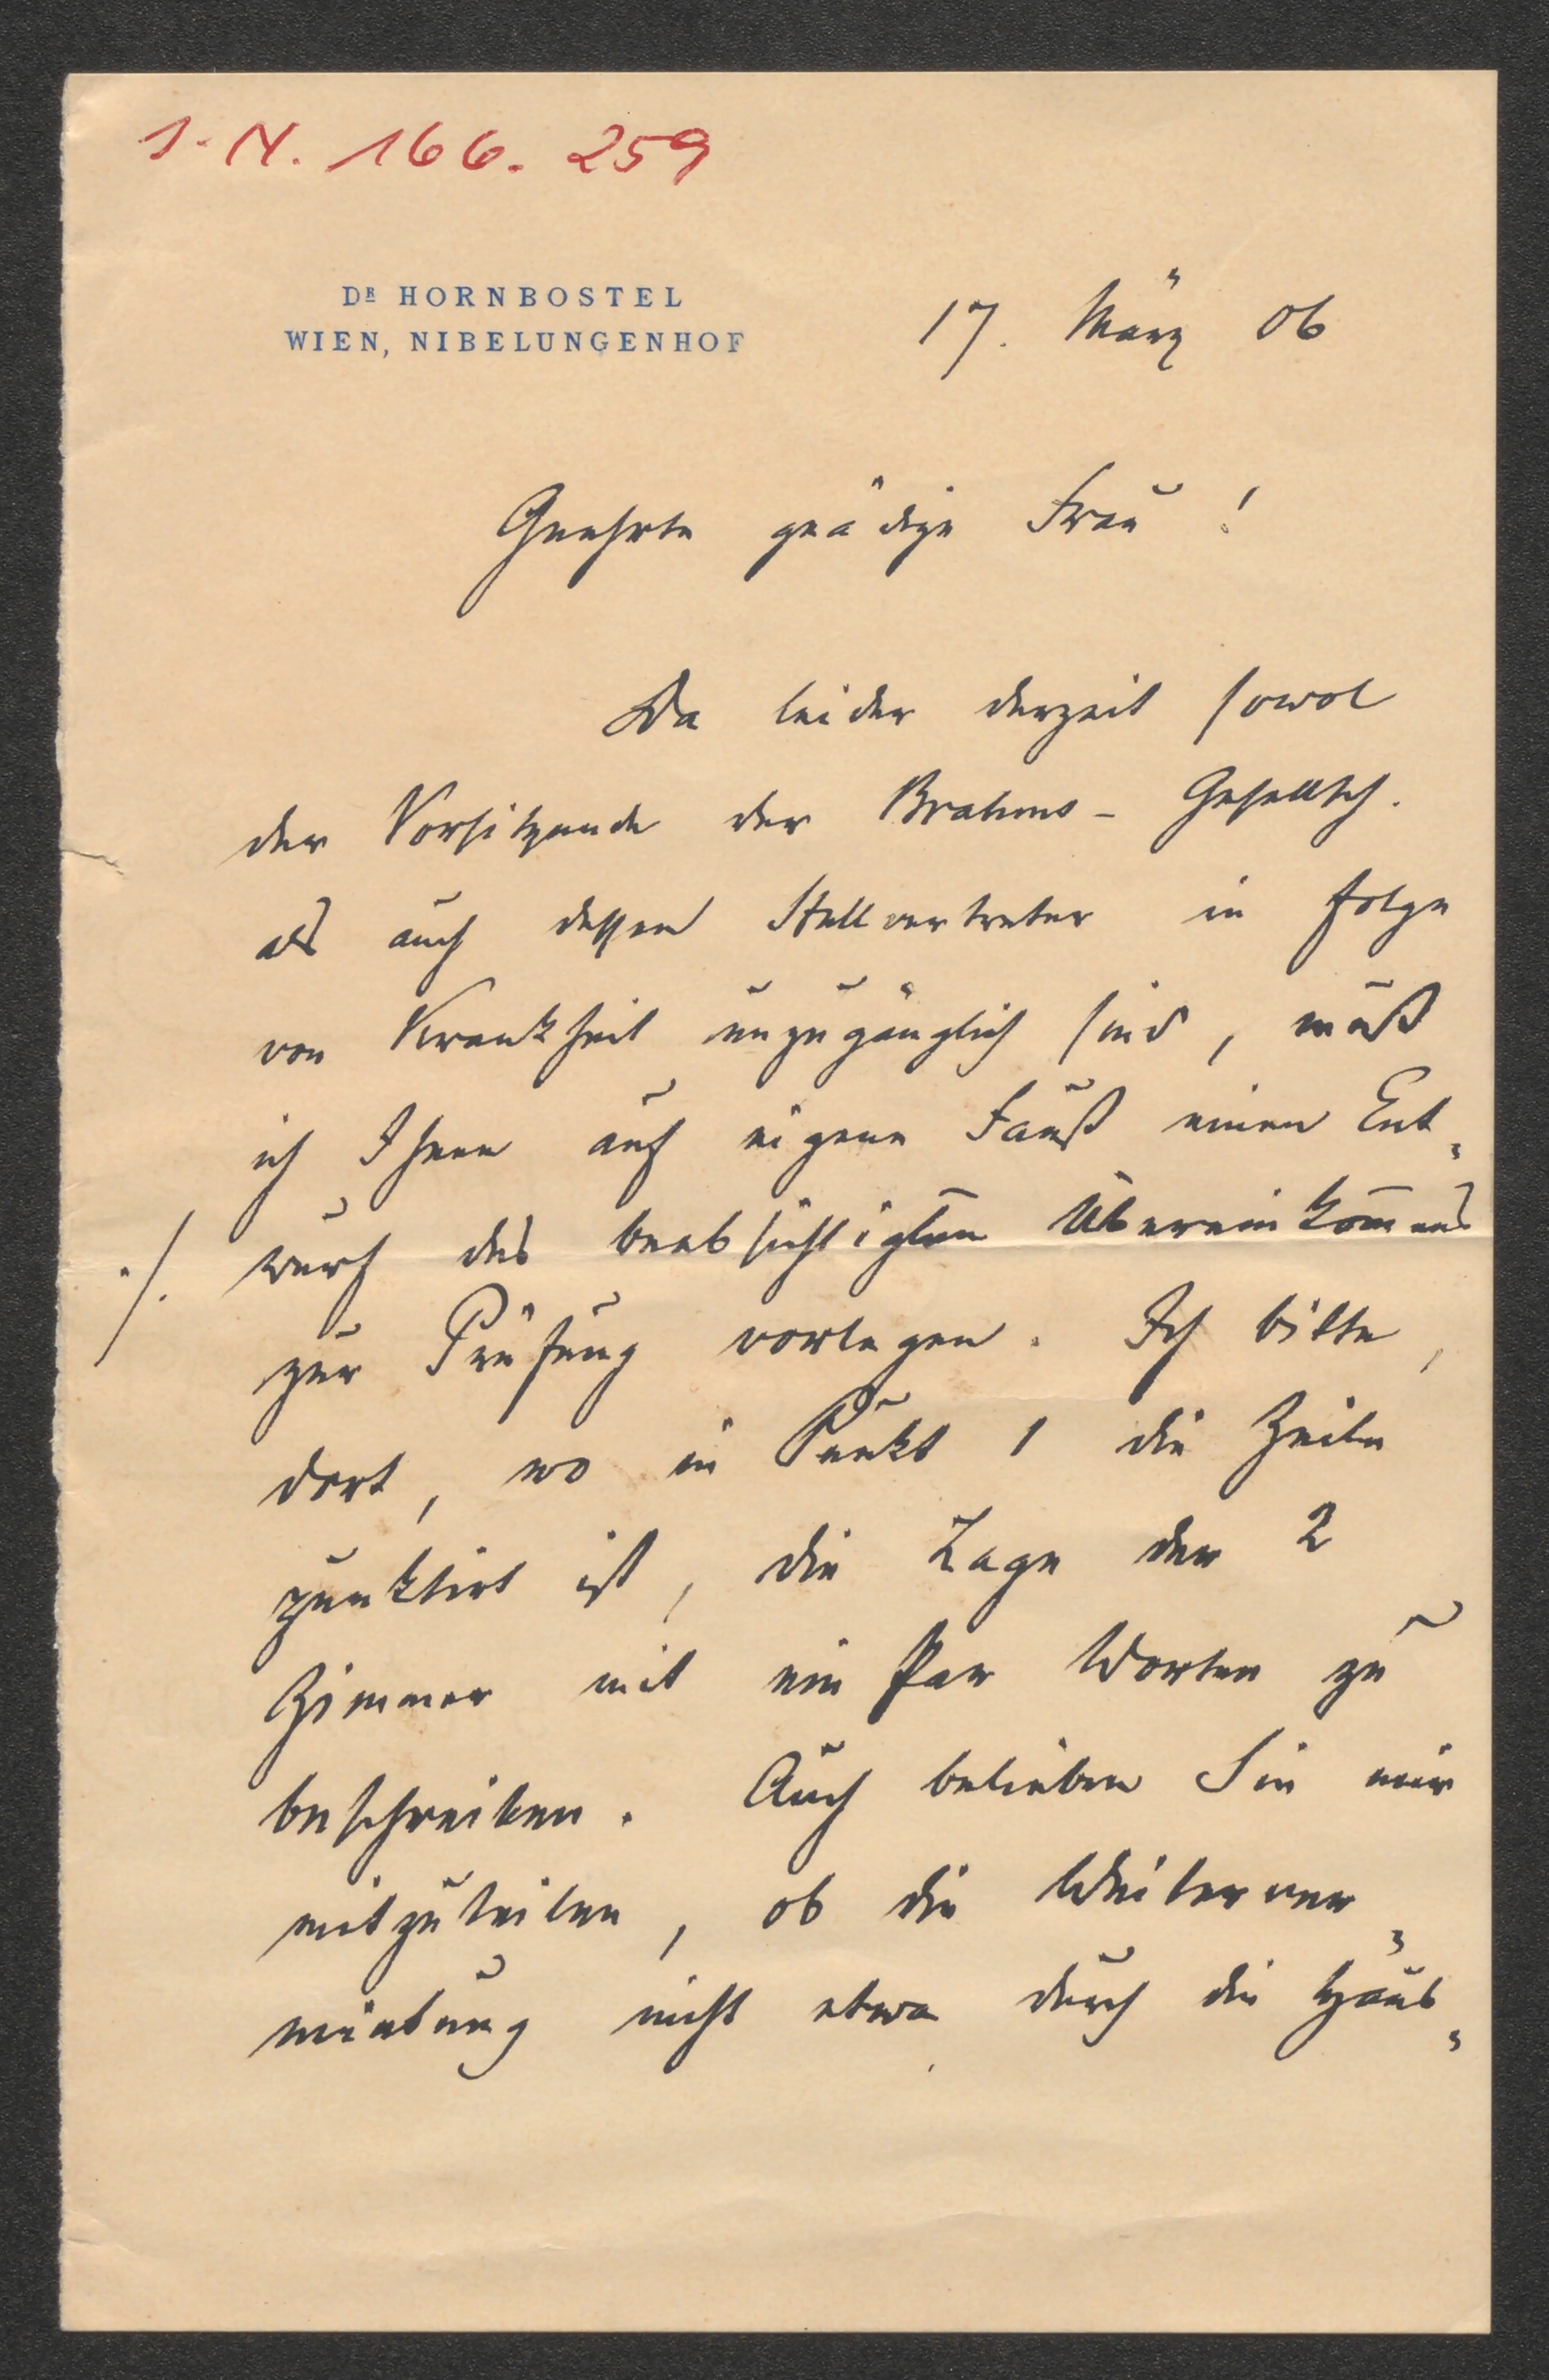 I. N. 166. 259
DR HORNBOSTEL
WIEN, NIBELUNGENHOF
17. März 06
Geehrte gnädige Frau!
Da leider derzeit sowol
der Vorsitzende der Brahms-Gesellsch.
als auch dessen Stellvertreter in Folge
von Krankheit unzugänglich sind, muß
ich Ihnen auf eigene Faust einen Ent„
./. wurf des beabsichtigten Übereinkom̄ens
zur Prüfung vorlegen. Ich bitte,
dort, wo in Punkt 1 die Zeile
punktirt ist, die Lage der 2
Zimmer mit ein Par Worten zu
beschreiben. Auch belieben Sie mir
mitzuteilen, ob die Weiterver„
mietung nicht etwa durch die Haus„